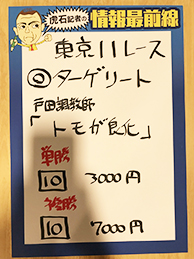 虎石記者の
情報最前線
東京11レース
◎ターゲリート
戸田調教師
「トモが良化」
単勝
10 3000円
複勝
10 7000円